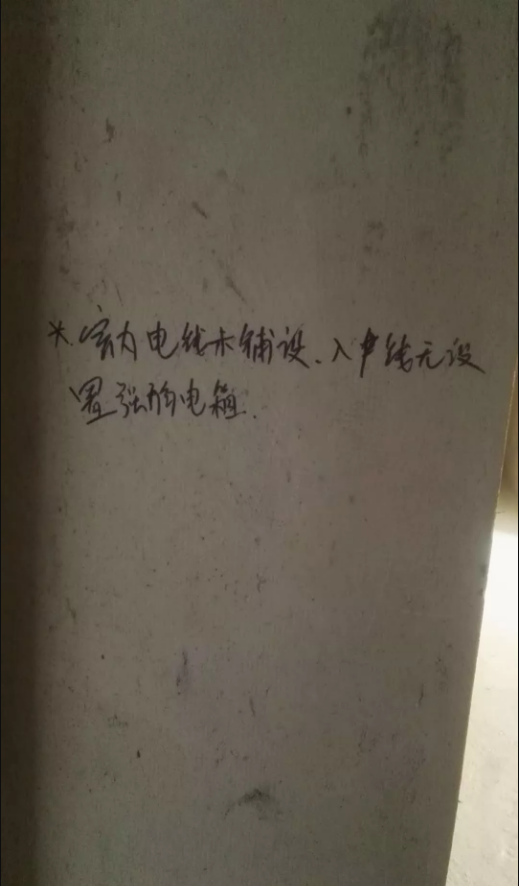 *.室内电线未铺设、入户线无设
置强弱电箱.